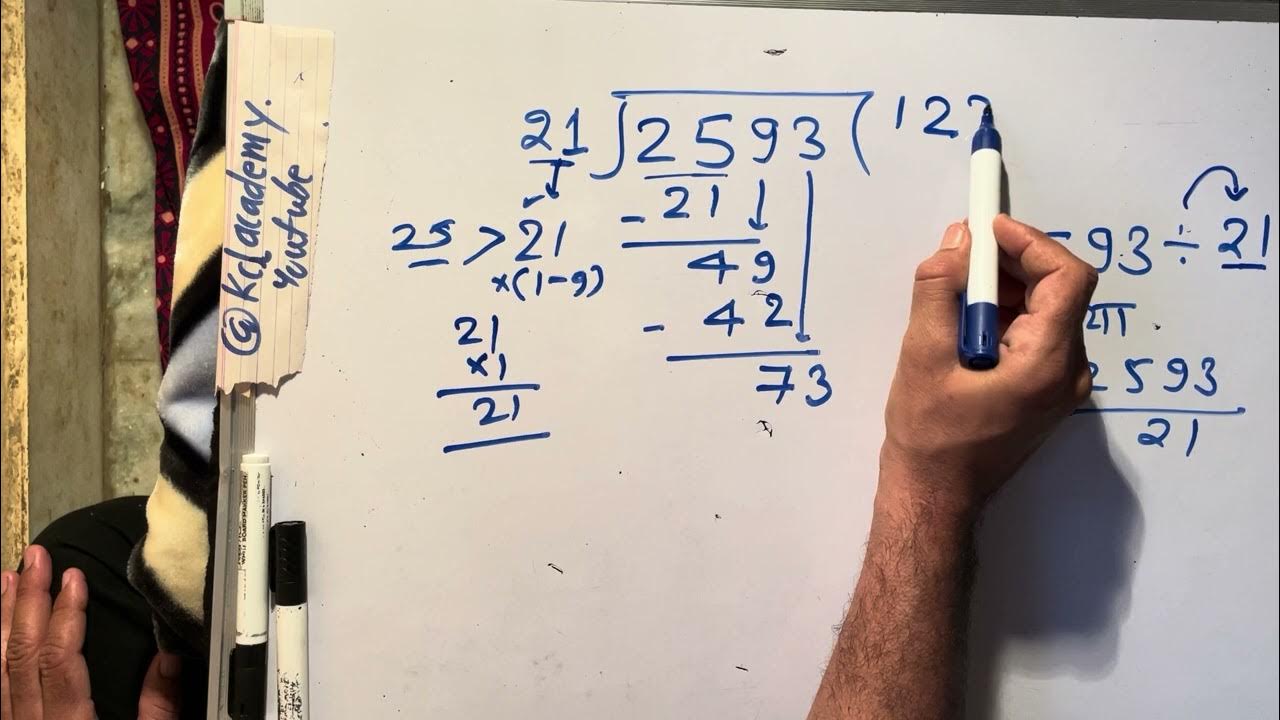 @Kclacademy.
Youtube
21 2593 ( 12
- 21
49
- 42
73
25 > 21
×(1-9)
21
×1
21
93 ÷ 21
या .
2593
21